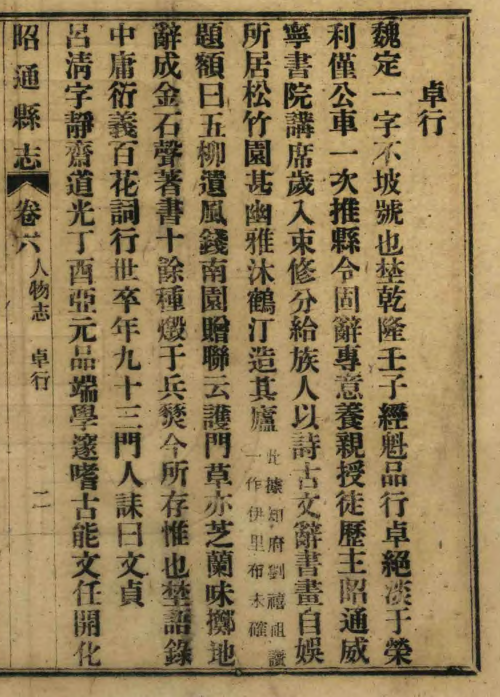 卓行
魏定一字不坡號也埜乾隆壬子經魁品行卓絕淡于榮
利僅公車一次推縣令固辭專意養親授徒歷主昭通威
寧書院講席歲入束修分給族人以詩古文辭書畫自娛
所居松竹園甚幽雅沐鶴汀造其廬
此據 府劉禧祖
一作伊里布未確
題額曰五柳遺風錢南園贈聯云護門草亦芝蘭味擲地
辭成金石聲著書十餘種燬于兵燹今所存惟也埜語錄
中庸衍義百花詞行世卒年九十三門人誄曰文貞
呂淸字靜齋道光丁酉亞元品端學邃嗜古能文任開化
昭通縣志 卷六 人物志 卓行 二